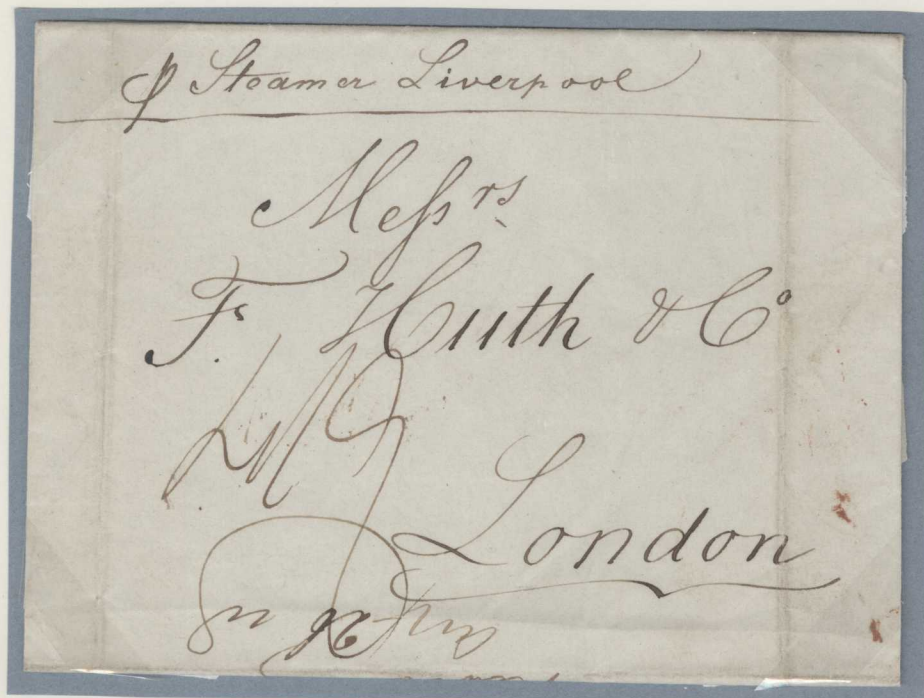 ℘ Steamer Liverpool
Messrs
F. Huth & Co
London